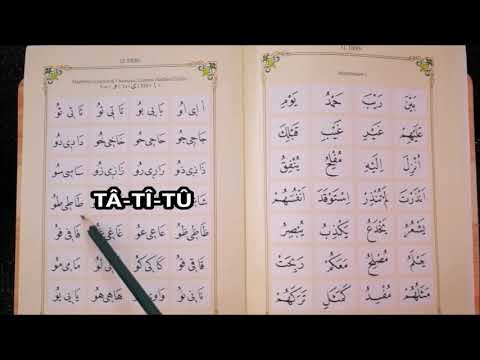 اَ اِى اُو بَا بِى بُو تَا تِى تُو ثَا ثِى ثُو
جَا جِى جُو حَا حِى حُو خَا خِى خُو دَا دِى دُو
ذَا ذِى ذُو رَا رِى رُو زَا زِى زُو سَا سِى سُو
شَا TÂ-TÎ-TÛ طَا طِى طُو
عَا عِى عُو غَا غِى فَا فِى فُو
قَا قِى قُو كَا كِى كُو لُو مَا مِى مُو
نَا نِى نُو وَا وِى هَا هِى هُو يَا يِى يُو
يَوْمِ حَمْدُ رَيْبَ بَيْنَ
قَبْلِكَ غَيْبِ غَيْرِ عَلَيْهِمْ
يُنْفِقُ مُفْلِحُ اِلَيْهِ اُنْزِلَ
اَنْفُسَهُمْ اِسْتَوْقَدَ لَمْ تُنْذِرْ اَنْذَرْتَ
يُبْصِرُ يَكْذِبُ يَخْدَعُ يَشْعُرُ
رَبِحَتْ مَعَكُمْ مُصْلِحُ يَعْلَمُ
تَرَكَهُمْ كَمَثَلِ مُفْسِدُ مَثَلُهُمْ